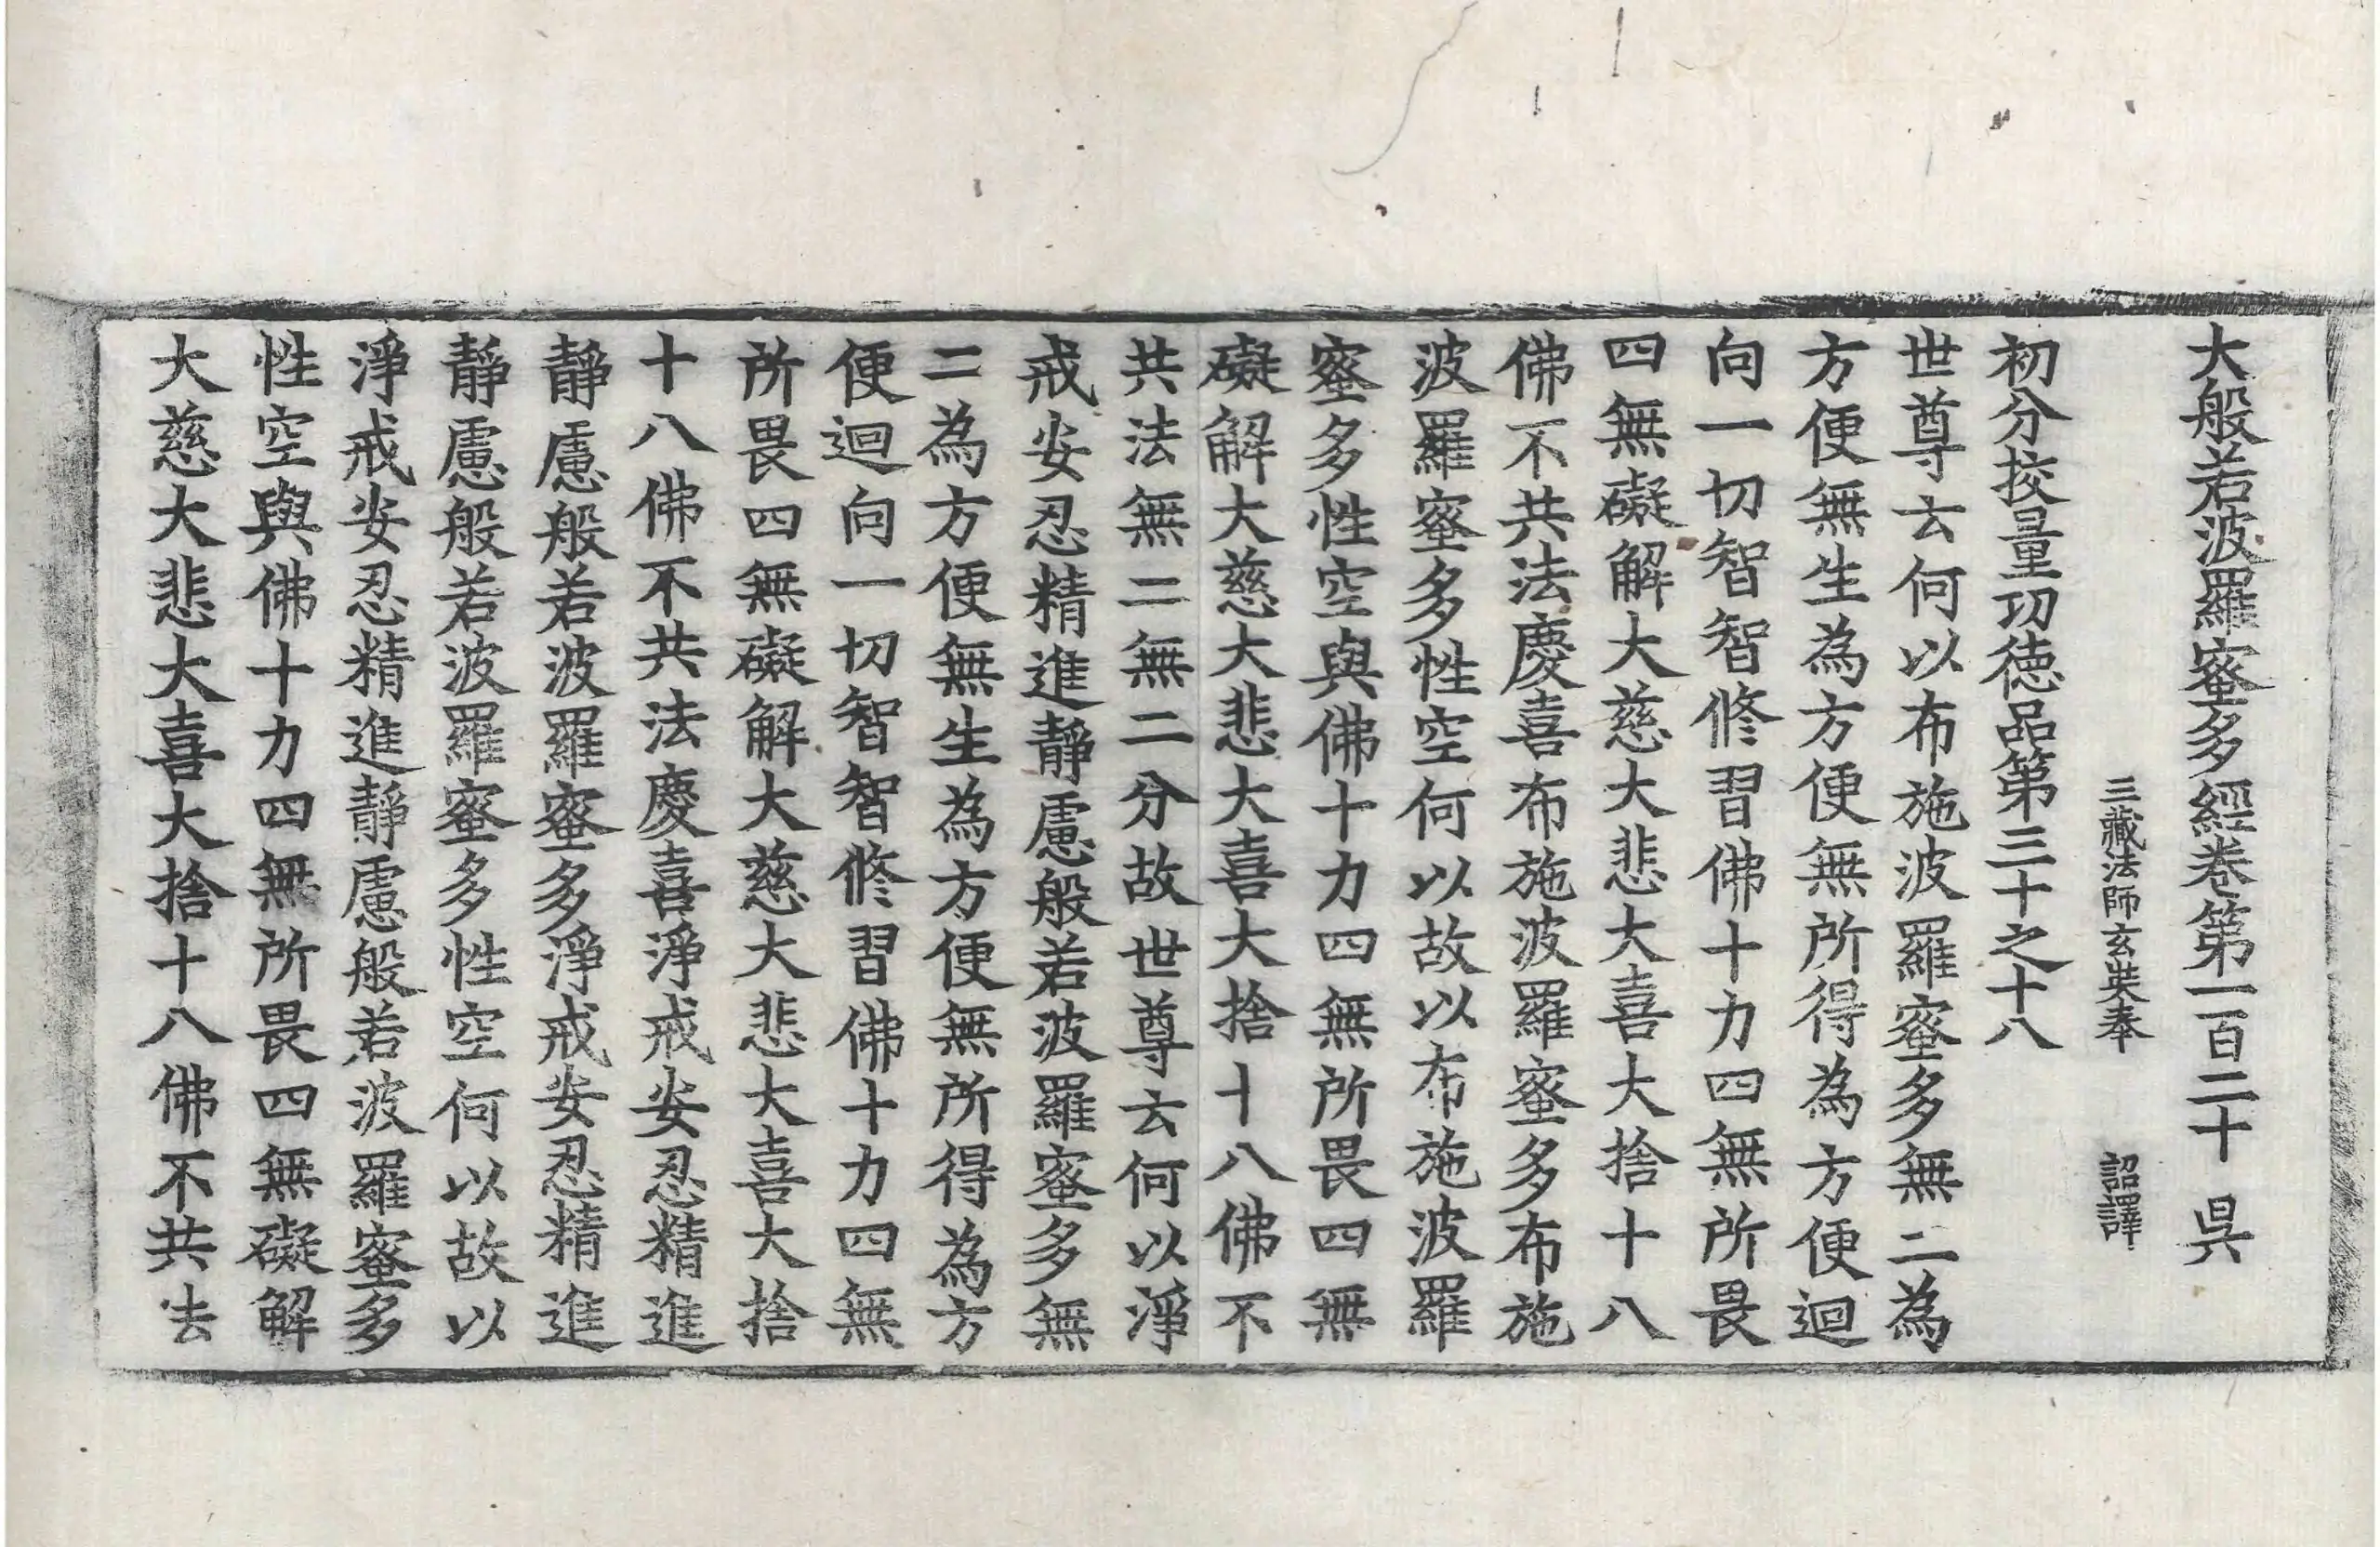 大般若波羅蜜多經卷第一百二十 呉
三藏法師玄奘奉 詔譯
初分挍量功徳品第三十之十八
世尊云何以布施波羅蜜多無二為
方便無生為方便無所得為方便迴
向一切智智修習佛十力四無所畏
四無礙解大慈大悲大喜大捨十八
佛不共法慶喜布施波羅蜜多布施
波羅蜜多性空何以故以布施波羅
蜜多性空與佛十力四無所畏四無
礙解大慈大悲大喜大捨十八佛不
共法無二無二分故世尊云何以淨
戒安忍精進靜慮般若波羅蜜多無
二為方便無生為方便無所得為方
便迴向一切智智修習佛十力四無
所畏四無礙解大慈大悲大喜大捨
十八佛不共法慶喜淨戒安忍精進
靜慮般若波羅蜜多淨戒安忍精進
靜慮般若波羅蜜多性空何以故以
淨戒安忍精進靜慮般若波羅蜜多
性空與佛十力四無所畏四無礙解
大慈大悲大喜大捨十八佛不共法